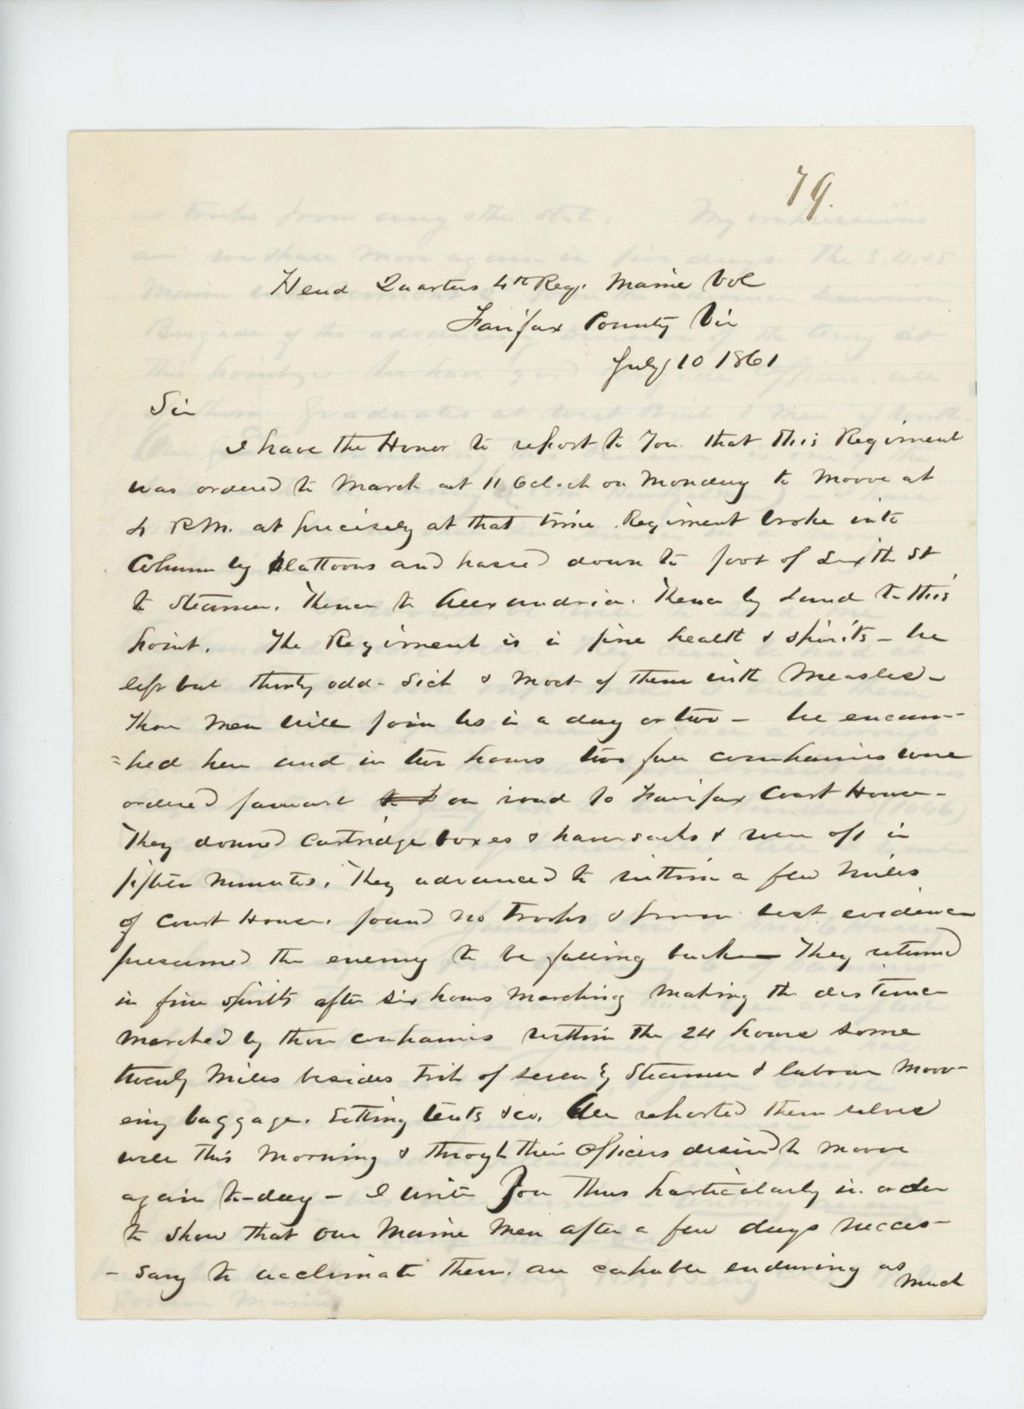 79.
Head Quarters 4th Reg. Maine Vol
Fairfax County Vir
July 10 1861
Sir
I have the Honor to report to You that this Regiment
was ordered to March at 11 Oclock on Monday to Moove at
4 P.M. at precisely at that time Regiment broke into
Column by plattoons and passed down to foot of Sixth St
to Steamer. Thence to Alexandria. Thence by Land to this
point. The Regiment is in fine health & spirits - We
left but thirty odd - Sick & most of them with Measles -
Those Men will join us in a day or two - We encam-
=ped here and in two hours two full companies were
ordered forward on road to Fairfax Court House -
They donned Cartridge boxes & haversacks & were off in
fifteen minutes. They advanced to within a few Miles
of Court House, found no troops & from best evidence
presumed the enemy to be falling back - They returned
in fine spirits after six hours marching making the distance
marched by those companies within the 24 hours some
twenty Miles besides trip of seven by Steamer & labour Moov-
eing baggage. Setting tents &co. All reported them selves
well this Morning & through their Officers desired to moove
again to-day - I write You thus particularly in order
to show that our Maine Men after a few days necces-
- sary to acclimate them. are capable enduring as
much